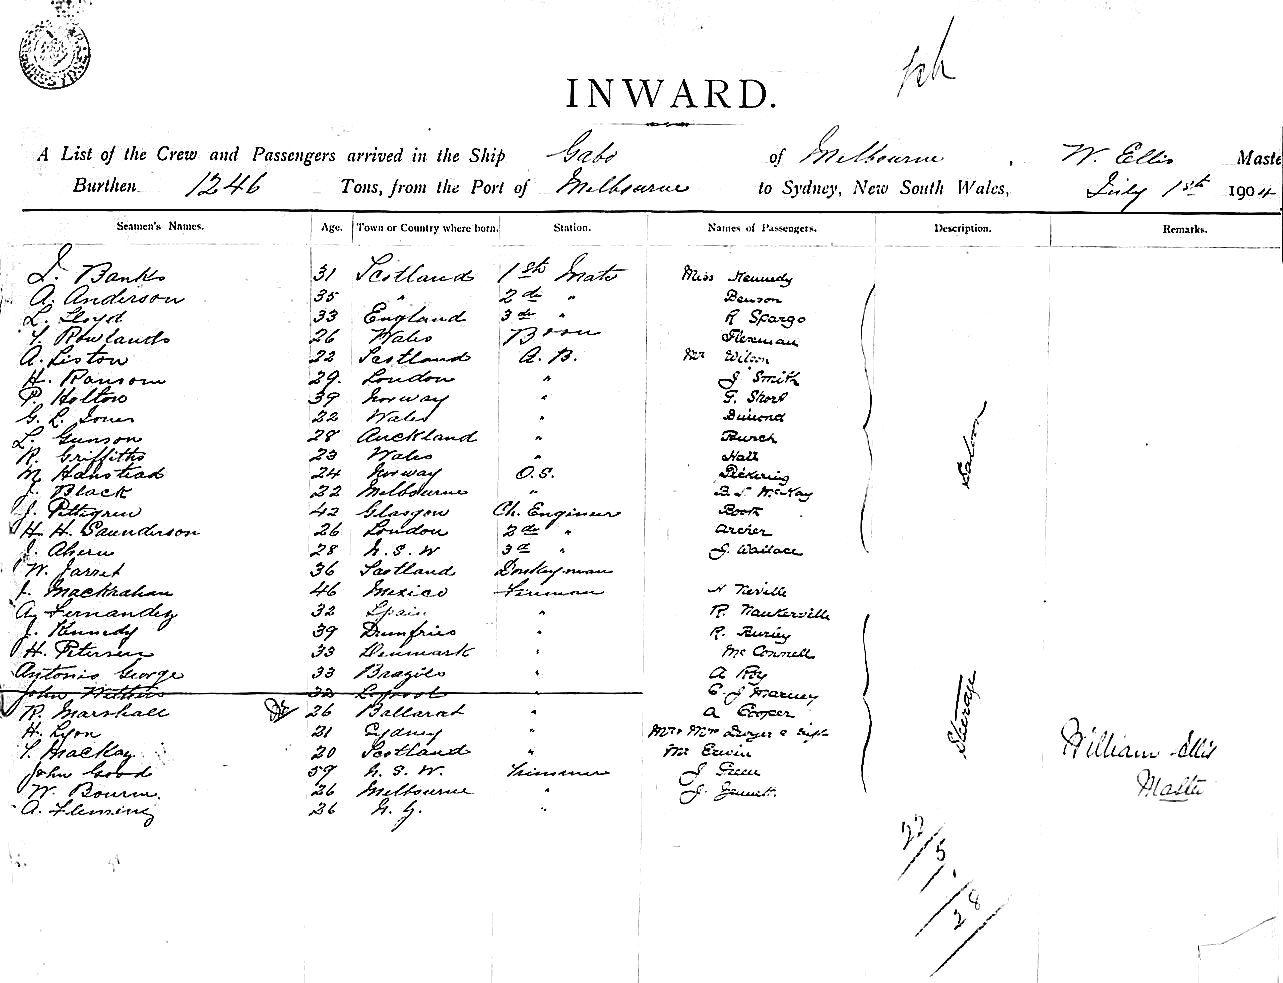 INWARD.
A List of the Crew and Passengers arrived in the Ship Gabo of Melbourne, W. Ellis Maste
Burthen 1246 Tons, from the Port of Melbourne to Sydney, New South Wales, July 1st 1904
Seamen's Names. Age. Town or Country where born. Station. Names of Passengers. Description. Remarks.
J. Banks 31 Scotland 1st Mate Miss Kennedy
A. Anderson 35 " 2d " Benson
L. Lloyd 33 England 3d " R Spargo
Y. Rowlands 26 Wales Bosn
A. Liston 22 Scotland A.B. Mr Wilson
H. Ransom 29. London " J Smith
P. Holton 39 Norway " G. Short
G. L. Jones 22 Wales " Dimond
L. Gunson 28 Auckland " Burch
R. Griffiths 23 Wales " Hall
M Hanstead 24 Norway O.S. Pickering
J. Black 22 Melbourne " McKay
J. Pettigrew 42 Glasgow Ch. Engineer Book
H. H. Saunderson 26 London 2d " Archer
J. Ahern 28 N.S.W 3d " J. Wallace
Saloon
W. Jarret 36 Scotland Donkeyman
J. Mackrahan 46 Mexico Fireman N Neville
A. Fernandez 32 Spain " R. Naukerville
J. Kennedy 39 Dumfries " R. Buriey
H. Petersen 33 Denmark " McConnell
Antonio George 33 Brazils " A Roy
John 32 L'pool " C J Marney
R. Marshall 26 Ballarat " A Cooper
H. Lyon 21 Sydney " Mr & Mrs Dwyer
Y. MacKay 20 Scotland " Mr Erwin
John Good 59 N.S.W. Trimmer J Green
W. Bourne. 26 Melbourne " J.
A. Fleming 26 N.Z. "
Steerage
William Ellis
Master
27/5/
1.
/28